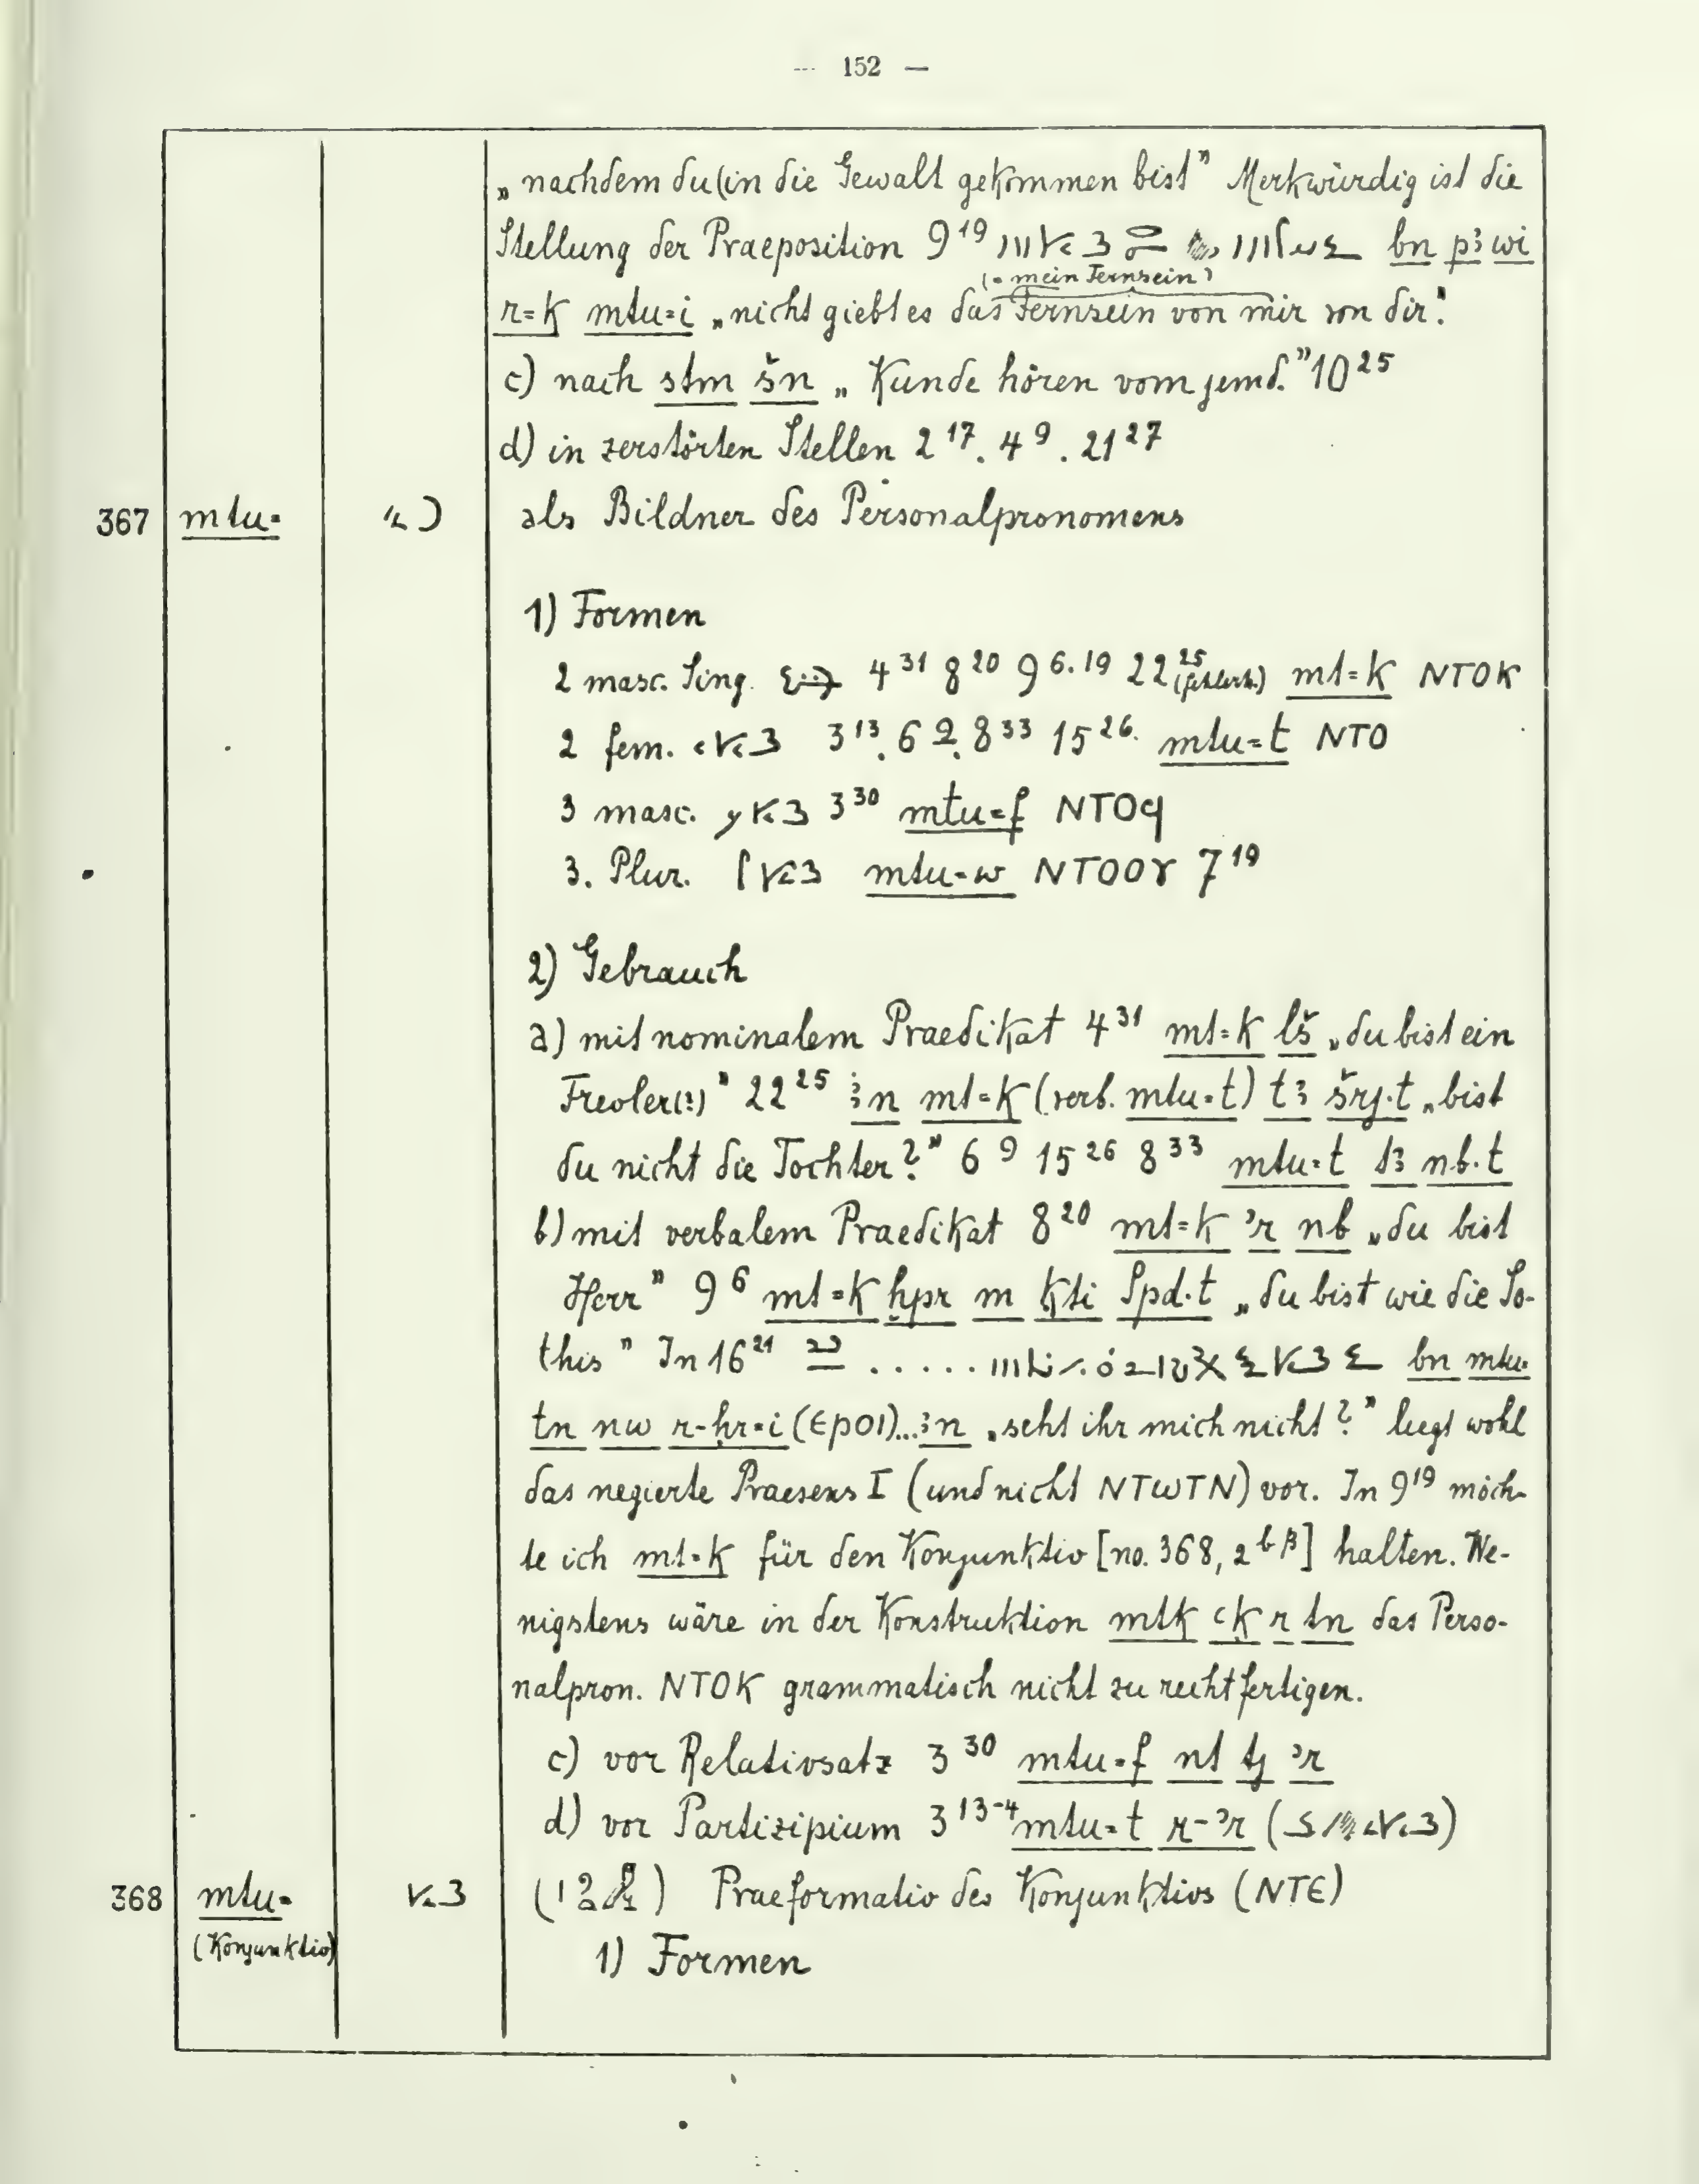 — 152 —
„nachdem du (in die Gewalt gekommen bist" Merkwürdig ist die
Stellung der Praeposition 9¹⁹ bn pꜣ wi
(= mein Fernsein)
r=k mtu=i „nicht giebt es das Fernsein von mir von dir".
c) nach stm šn „Kunde hören vom jemd." 10²⁵
d) in zerstörten Stellen 2¹⁷. 4⁹. 21²⁷
367 mtu= als Bildner des Personalpronomens
1) Formen
2 masc. Sing. 4³¹ 8²⁰ 9⁶·¹⁹ 22²⁵ (fehlerh.) mt=k ⲚⲦⲞⲔ
2 fem. 3¹³. 6⁹. 8³³ 15²⁶. mtu=t ⲚⲦⲞ
3 masc. 3³⁰ mtu=f ⲚⲦⲞϤ
3. Plur. mtu=w ⲚⲦⲞⲞⲨ 7¹⁹
2) Gebrauch
a) mit nominalem Praedikat 4³¹ mt=k lš „du bist ein
Frevler(?)" 22²⁵ ꜣn mt=k (verb. mtu=t) tꜣ šrj·t „bist
du nicht die Tochter?" 6⁹ 15²⁶ 8³³ mtu=t tꜣ nb·t
b) mit verbalem Praedikat 8²⁰ mt=k ꜣr nb „du bist
Herr" 9⁶ mt=k ḫpr m kti Spd·t „du bist wie die So-
this" In 16²¹ ..... bn mtu=
tn nw r-ḥr=i (ⲈⲢⲞⲒ)...ꜣn „seht ihr mich nicht?" liegt wohl
das negierte Praesens I (und nicht ⲚⲦⲰⲦⲚ) vor. In 9¹⁹ möch-
te ich mt=k für den Konjunktiv [no. 368, 2ᵇᵝ] halten. We-
nigstens wäre in der Konstruktion mtk ꜥk r tn das Perso-
nalpron. ⲚⲦⲞⲔ grammatisch nicht zu rechtfertigen.
c) vor Relativsatz 3³⁰ mtu=f nt tj ꜣr
d) vor Partizipium 3¹³⁻⁴ mtu=t r-ꜣr
368 mtu= Praeformativ des Konjunktivs (ⲚⲦⲈ)
(Konjunktiv)
1) Formen